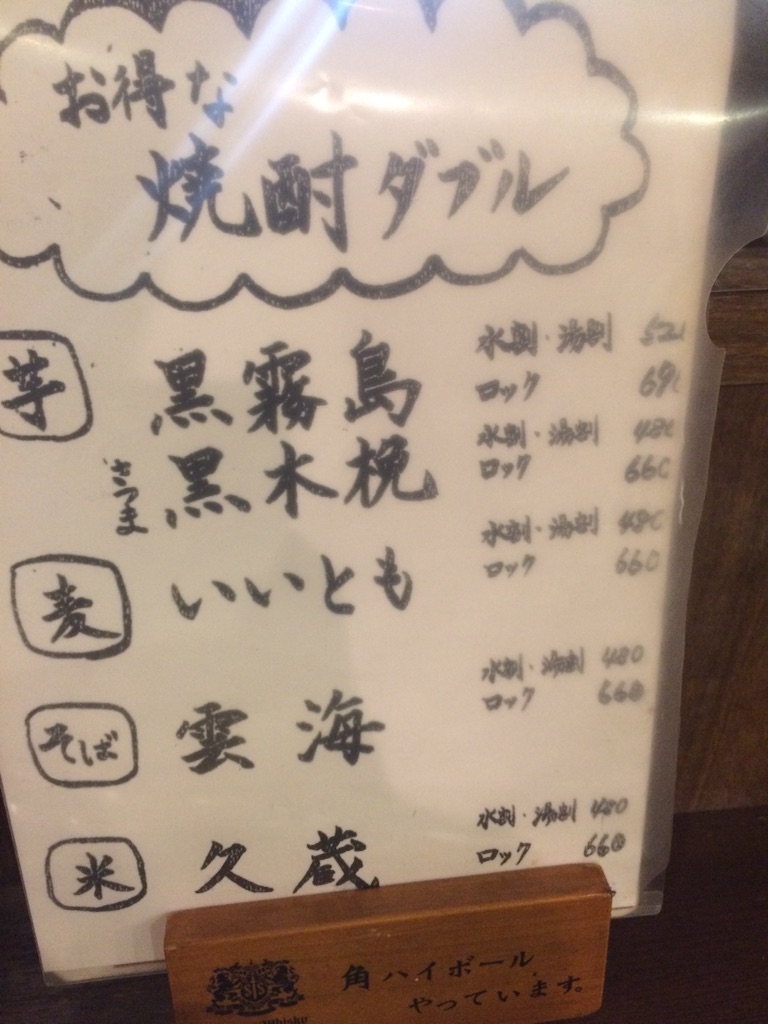 お得な
焼酎ダブル
芋 黒霧島 水割・湯割 520
ロック 690
さつま 黒木挽 水割・湯割 480
ロック 660
麦 いいとも 水割・湯割 480
ロック 660
そば 雲海 水割・湯割 480
ロック 660
米 久蔵 水割・湯割 480
ロック 660
角ハイボール
やっています。